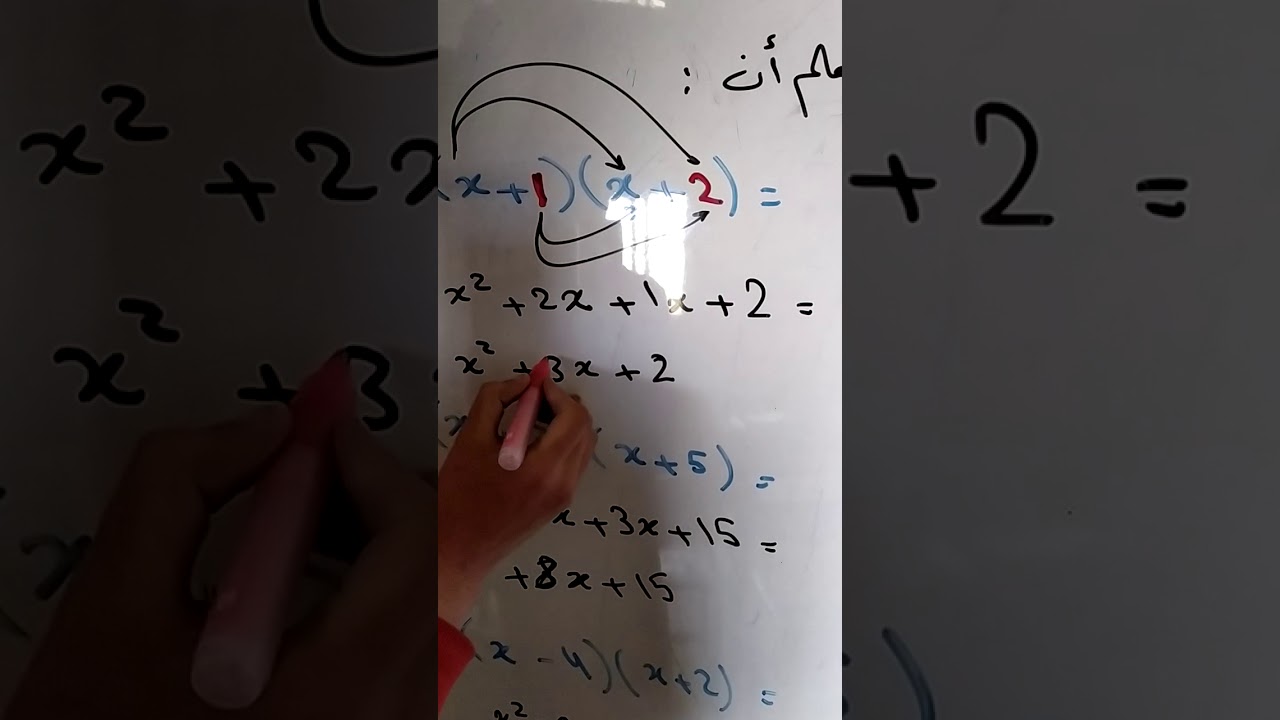 أن :
(x+1)(x+2) =
x² + 2x + 1x + 2 =
x² + 3x + 2
(x+5) =
x + 3x + 15 =
+ 8x + 15
(x - 4)(x+2) =
x²